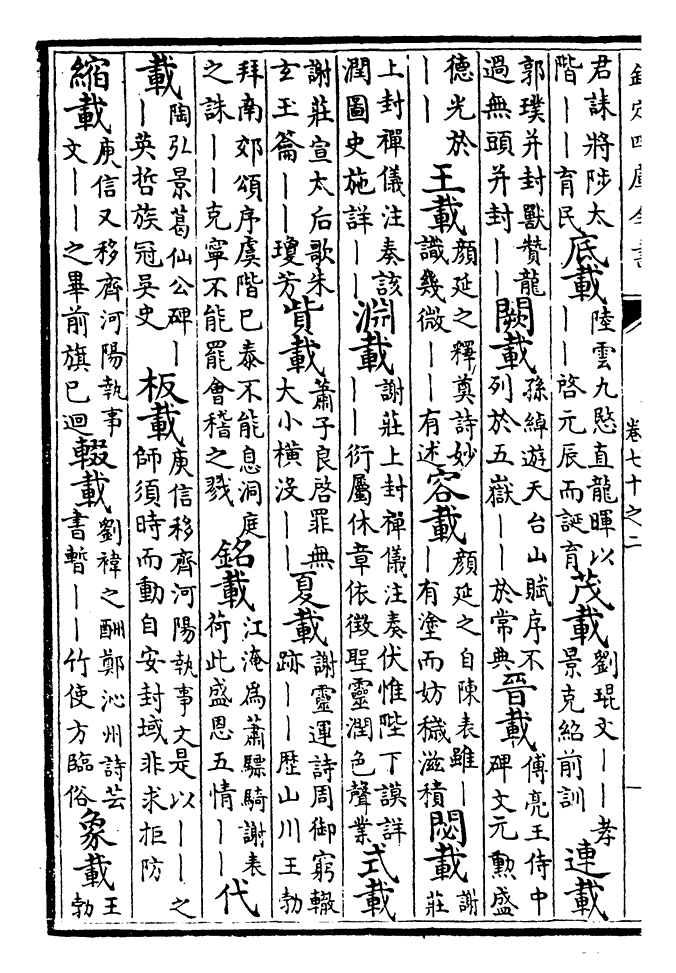 欽定四庫全書 卷七十之二 一
君誄將陟太階——育民 底載 陸雲九愍直龍暉以——啓元辰而誕育 茂載 劉琨文——孝景克紹前訓 連載
郭璞并封獸贊龍過無頭并封—— 闕載 孫綽遊天台山賦序不列於五嶽——於常典 晉載 傅亮王侍中碑文元勲盛
德光於—— 王載 顔延之釋奠詩妙識幾微——有述 容載 顔延之自陳表雖——有塗而妨穢滋積 閟載 謝莊
上封禪儀注奏該潤圖史施詳—— 淵載 謝莊上封禪儀注奏伏惟陛下謨詳——衍屬休章依徵聖靈潤色聲業 式載
謝莊宣太后歌朱玄玉籥——瓊芳 貲載 蕭子良啓罪無大小横没—— 夏載 謝靈運詩周御窮轍跡——歴山川王勃
拜南郊頌序虞階已泰不能息洞庭之誅——克寧不能罷會稽之戮 銘載 江淹為蕭驃騎謝表荷此盛恩五情—— 代
載 陶弘景葛仙公碑——英哲族冠吳史 板載 庾信移齊河陽執事文是以——之師須時而動自安封域非求拒防
縮載 庾信又移齊河陽執事文——之畢前旗已迴 輟載 劉禕之酬鄭沁州詩芸書暫——竹使方臨俗 象載 王勃